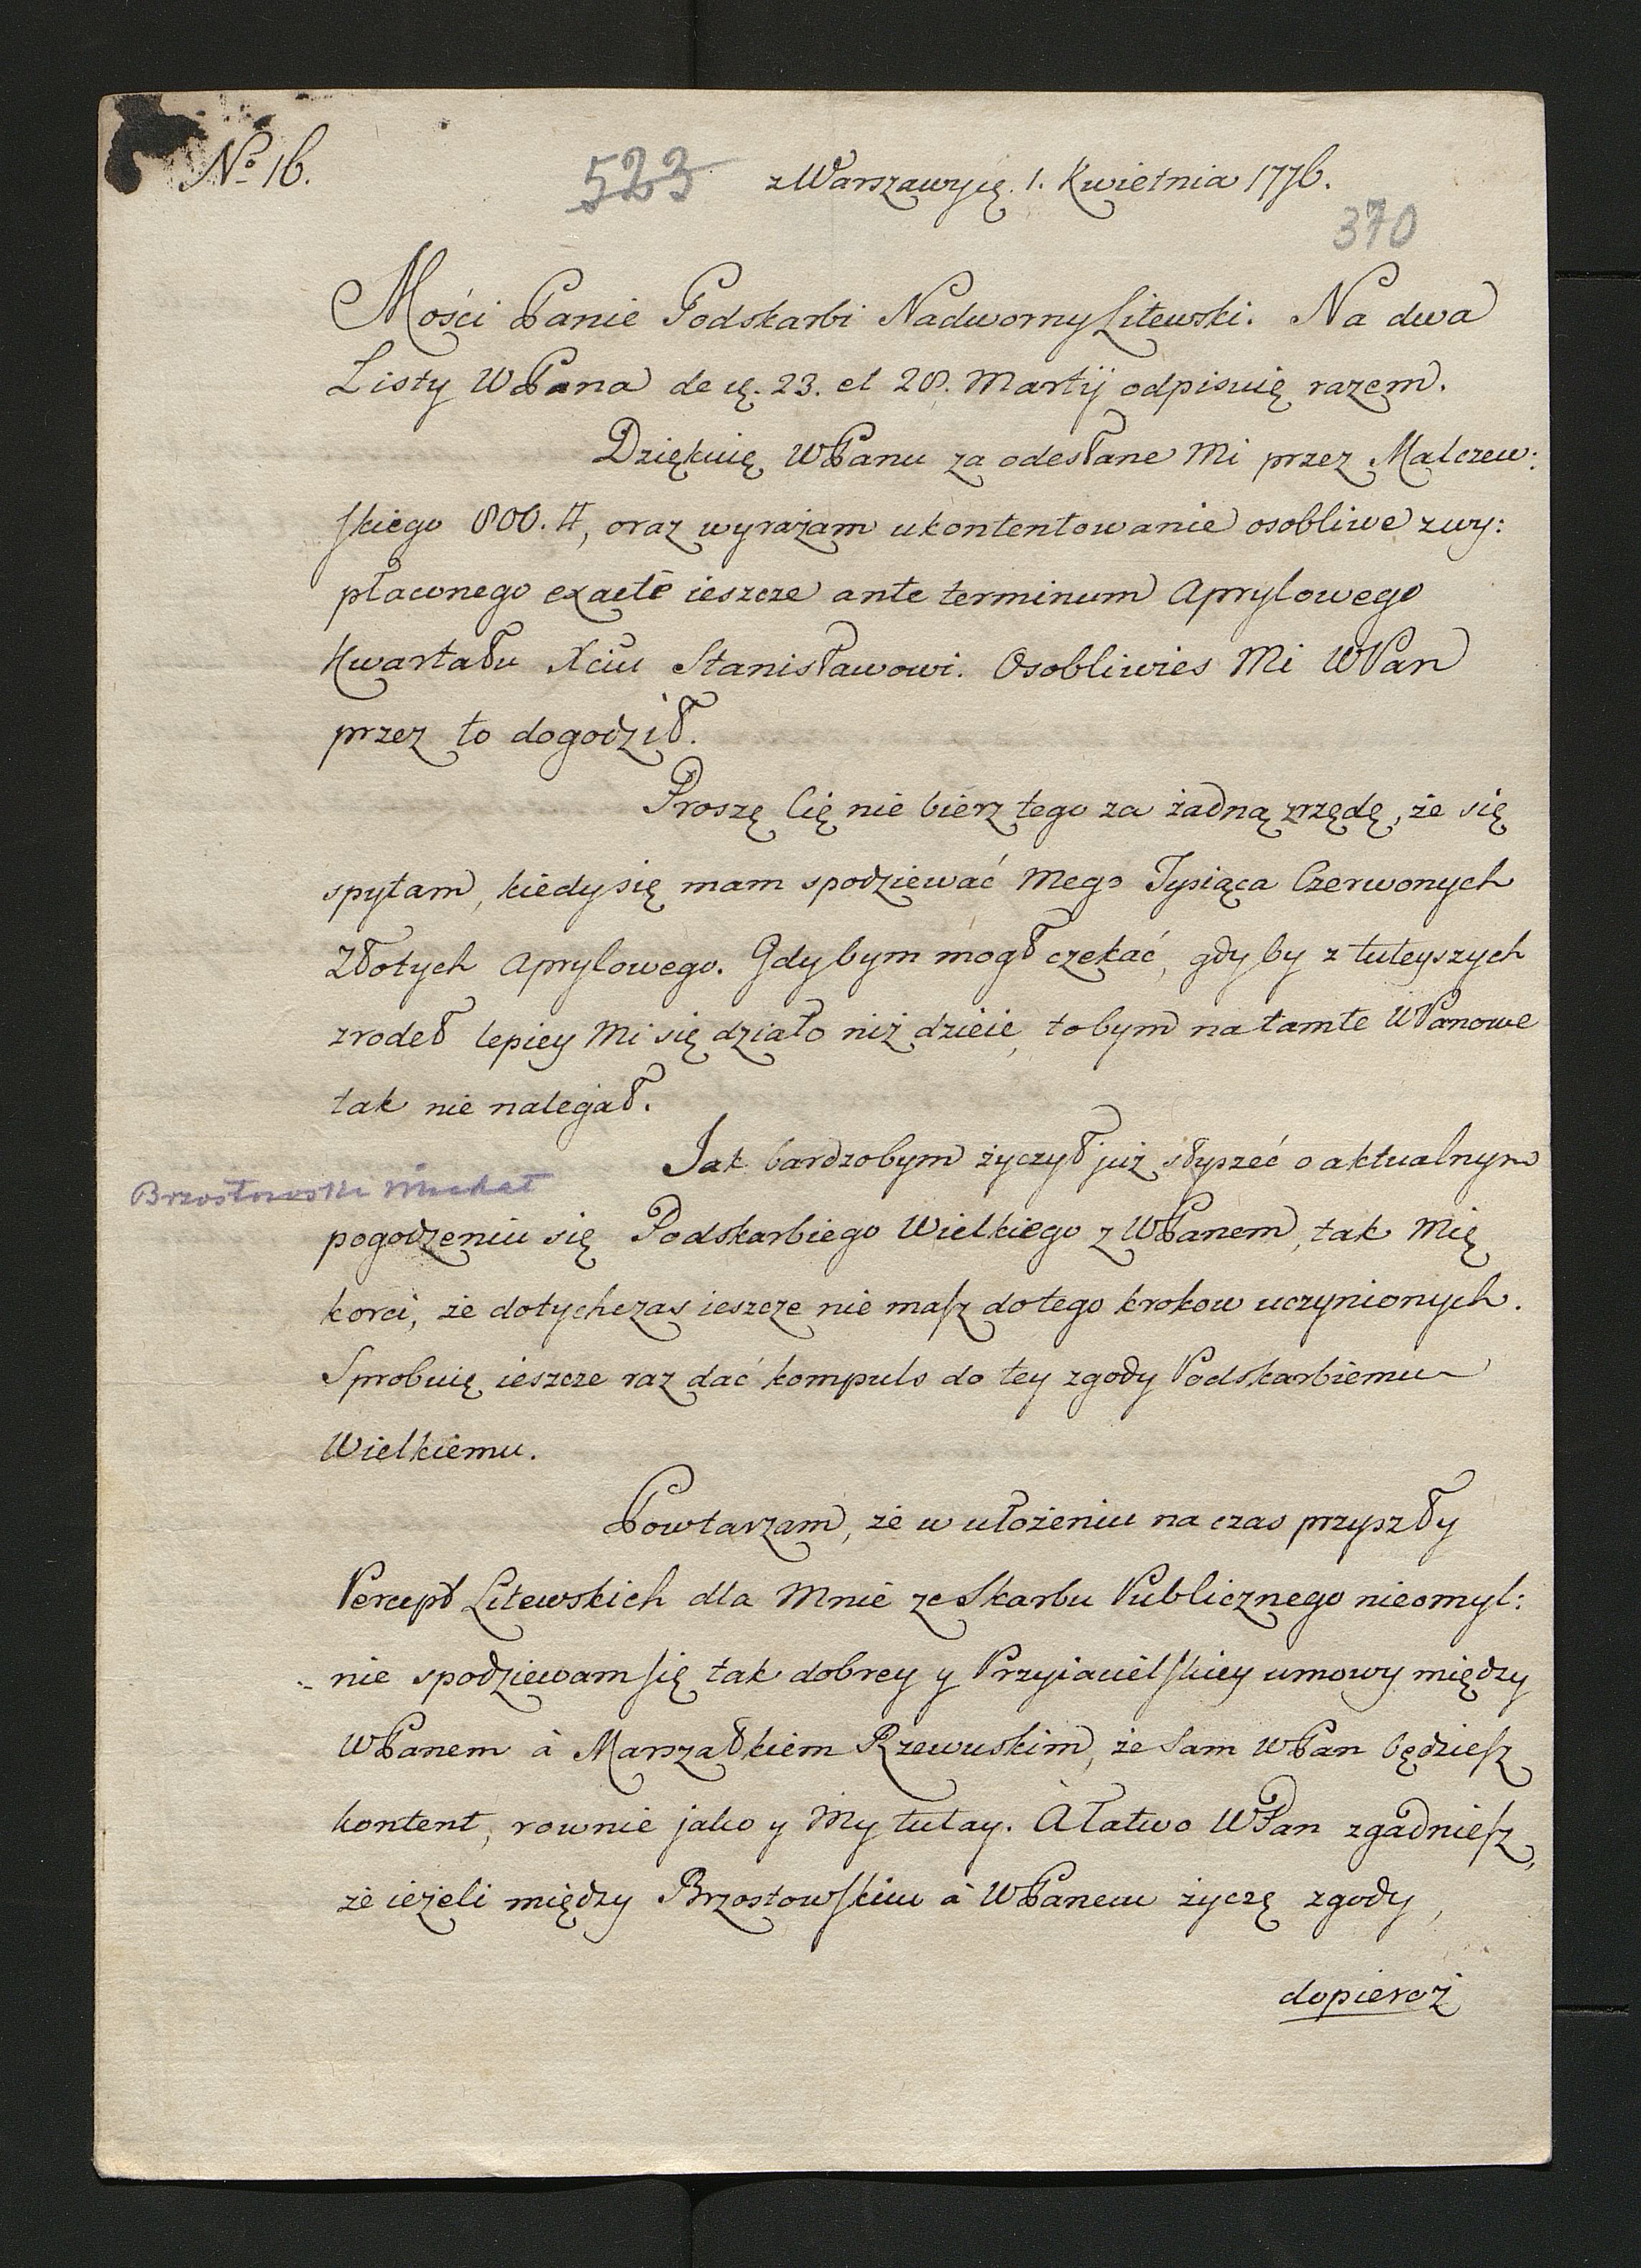 No 16.
523
z Warszawy ię. 1. Kwietnia 1776.
370
Mości Panie Podskarbi Nadworny Litewski. Na dwa
Listy WPana de ię. 23. et 28. Martij odpisuię razem.
Dziękuię WPanu za odesłane Mi przez Malczew:
skiego 800. #, oraz wyrażam ukontentowanie osobliwe z wy:
płaconego exacte ieszcze ante terminum Aprylowego
Kwartału Xciu Stanisławowi. Osobliwies Mi WPan
przez to dogodził.
Proszę Cię nie bierz tego za żadną zrzędę, że się
spytam, kiedy się mam spodziewać Mego Tysiąca Czerwonych
Złotych Aprylowego. Gdybym mogł czekać, gdyby z tuteyszych
zrodeł lepiey Mi się działo niż dzieie, tobym na tamte WPanowe
tak nie nalegał.
Jak bardzobym życzył już słyszeć o aktualnym
Brzostowski Michał
pogodzeniu się Podskarbiego Wielkiego z WPanem, tak Mię
korci, że dotychczas ieszcze nie masz do tego krokow uczynionych.
Sprobuię ieszcze raz dać kompuls do tey zgody Podskarbiemu
Wielkiemu.
Powtarzam, że w ułożeniu na czas przyszły
Percept Litewskich dla Mnie ze Skarbu Publicznego nieomyl:
nie spodziewam się tak dobrey y Przyiacielskiey umowy między
WPanem à Marszałkiem Rzewuskim, że Sam WPan będziesz
kontent, rownie jako y My tutay. A łatwo WPan zgadniesz,
że ieżeli między Brzostowskim à WPanem życzę zgody,
dopieroż